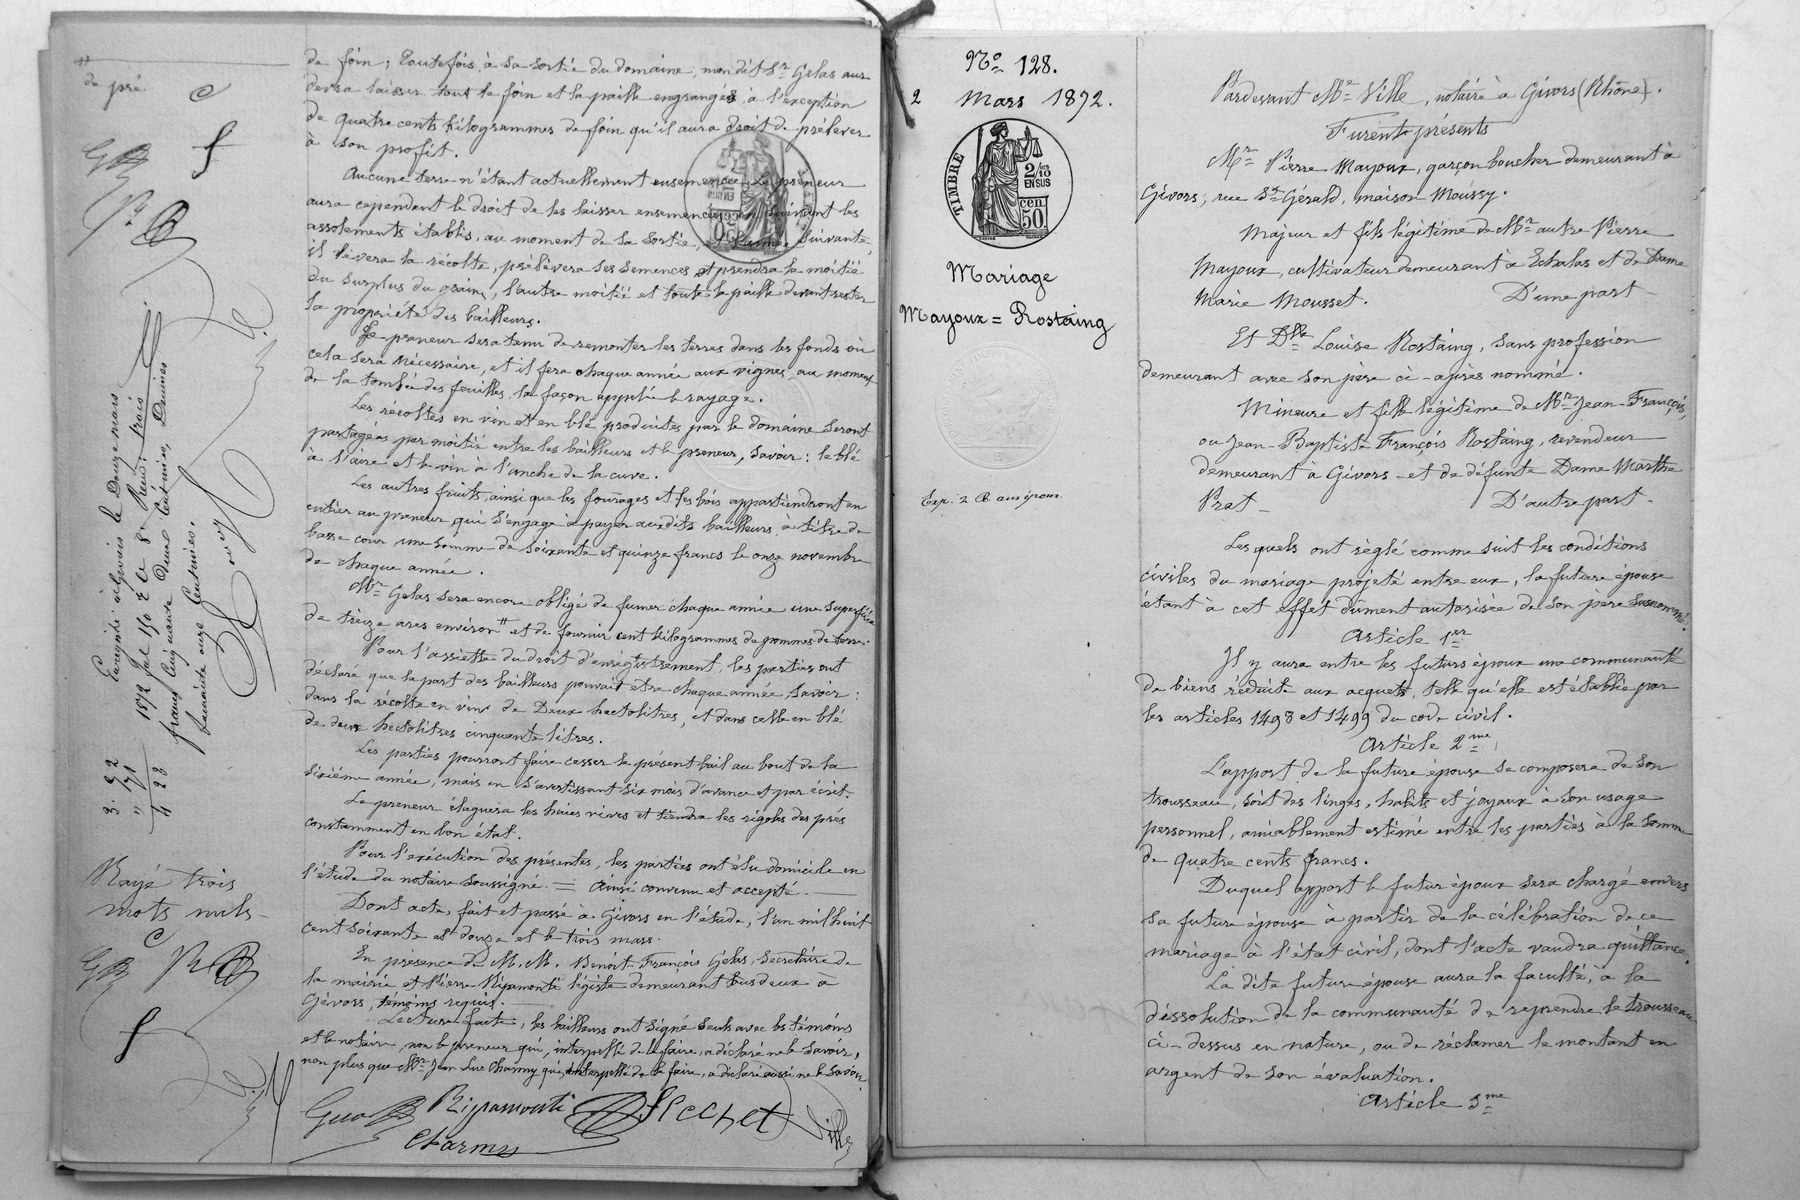 de foin ; toutefois, à sa sortie du domaine, mon dit Sr Gelas aura
devra laisser tout le foin et la paille engrangés à l'exception
de quatre cents kilogrammes de foin qu'il aura droit de prélever
à son profit.
Aucune terre n'étant actuellement ensemencée, le preneur
aura cependant le droit de les laisser ensemencées en suivant les
assolements établis, au moment de sa sortie, et l'année suivante,
il lèvera la récolte, prélèvera ses semences et prendra la moitié
du surplus du grain, l'autre moitié et toute la paille devant rester
la propriété des bailleurs.
Le preneur sera tenu de remonter les terres dans les fonds où
cela sera nécessaire, et il fera chaque année aux vignes au moment
de la tombée des feuilles, la façon appelée
Les récoltes en vin et en blé produites par le domaine seront
partagées par moitié entre les bailleurs et le preneur, savoir : le blé
à l'aire et le vin à l'anche de la cuve.
Les autres fruits, ainsi que les fourages et les bois appartiendront en
entier au preneur qui s'engage à payer auxdits bailleurs à titre de
basse cour une somme de soixante et quinze francs le onze novembre
de chaque année.
Mr Gelas sera encore obligé de fumer chaque année une superficie
de treize ares environ # et de fournir cent kilogrammes de pommes de terre.
Pour l'assiette du droit d'enregistrement, les parties ont
déclaré que la part des bailleurs pouvait etre chaque année savoir :
dans la récolte en vin de Deux hectolitres, et dans celle en blé
de deux hectolitres cinquante litres.
Les parties pourront faire cesser le présent bail au bout de la
sixième année, mais en s'avertissant six mois d'avance et par écrit.
Le preneur élaguera les haies vives et tiendra les rigoles des prés
constamment en bon état.
Pour l'exécution des présentes, les parties ont élu domicile en
l'étude du notaire soussigné. = Ainsi convenu et accepté.
Dont acte, fait et passé à Givors en l'étude, l'an mil huit
cent soixante et douze et le trois mars.
En présence de M. M. Benoit François Gelas, secrétaire de
la mairie et Pierre Ripamonti légiste demeurant tous deux à
Givors, témoins requis.
Lecture faite, les bailleurs ont signé seuls avec les témoins
et le notaire, non le preneur qui, interpellé de le faire, a déclaré ne le savoir,
non plus que Mr Jean Luc Charmy qui, interpellé de le faire, a déclaré aussi ne le savoir.
Ripamonti
Flechet
Ville
Charmy
#
de pré
Enregistré à Givors le Douze mars
1872 fol 150 Vo Co 8. Reçu : trois
francs cinquante Deux centimes, Decimes
soixante onze centimes.
3. 52
" 71
4 23
Rayé trois
mots nuls
No 128.
2 Mars 1872.
TIMBRE
2/10 EN SUS
50 cen
Mariage
Mayoux = Rostaing
Exp. 2 R. aux époux
Pardevant Me Ville, notaire à Givors (Rhône).
Furent présents
Mr Pierre Mayoux, garçon boucher demeurant à
Givors, rue St Gérald, maison Moussy.
Majeur et fils légitime de Mr autre Pierre
Mayoux, cultivateur demeurant à Echalas et de Dame
Marie Mousset. D'une part
Et Dlle Louise Rostaing, sans profession
demeurant avec son père ci-après nommé.
Mineure et fille légitime de Mr Jean-François,
ou Jean-Baptiste François Rostaing, revendeur
demeurant à Givors et de défunte Dame Marthe
Prat - D'autre part -
Lesquels ont règlé comme suit les conditions
civiles du mariage projeté entre eux, la future épouse
étant à cet effet dûment autorisée de son père susnommé.
Article 1er
Il y aura entre les futurs époux une communauté
de biens réduite aux acquets, telle qu'elle est établie par
les articles 1498 et 1499 du code civil.
Article 2me
L'apport de la future épouse se composera de son
trousseau, soit des linges, habits et joyaux à son usage
personnel, amiablement estimé entre les parties à la somme
de quatre cents francs.
Duquel apport le futur époux sera chargé envers
sa future épouse à partir de la célébration de ce
mariage à l'état civil, dont l'acte vaudra quittance.
La dite future épouse aura la faculté, à la
dissolution de la communauté de reprendre le trousseau
ci-dessus en nature, ou de réclamer le montant en
argent de son évaluation.
Article 3me